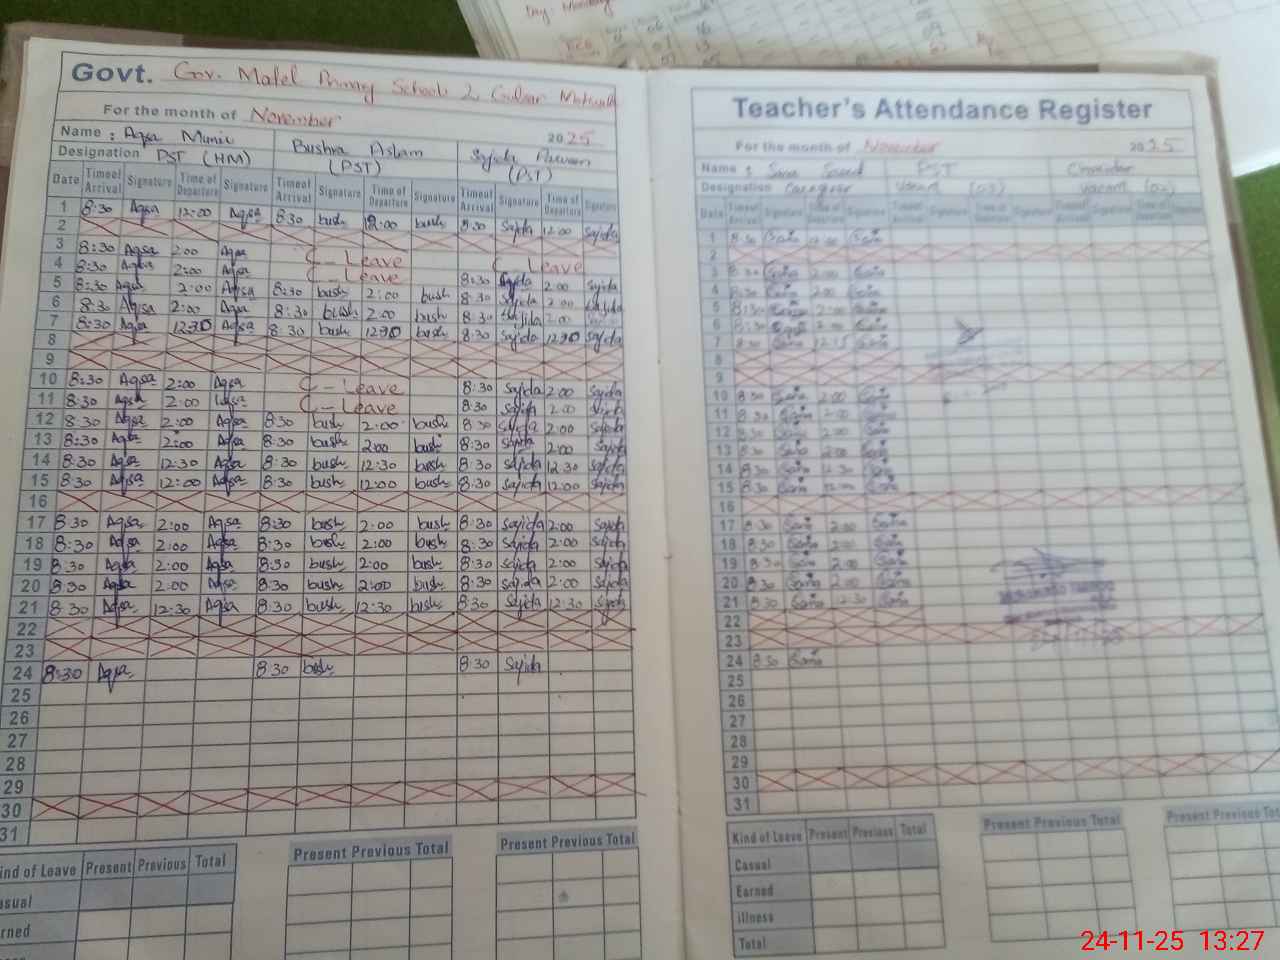 Day: Monday
Govt. Gov. Model Primary School 2
For the month of November
2025
Name : Aqsa Munir Bushra Aslam Sajida Parveen
Designation PST (HM) (PST) (PST)
Date Time of Arrival Signature Time of Departure Signature Time of Arrival Signature Time of Departure Signature Time of Arrival Signature Time of Departure Signature
1 8:30 Aqsa 12:00 Aqsa 8:30 bush 12:00 bush 8:30 Sajida 12:00 Sajida
2
3 8:30 Aqsa 2:00 Aqsa C-Leave C Leave
4 8:30 Aqsa 2:00 Aqsa C-Leave 8:30 Sajida 2:00 Sajida
5 8:30 Aqsa 2:00 Aqsa 8:30 bush 2:00 bush 8:30 Sajida 2:00 Sajida
6 8:30 Aqsa 2:00 Aqsa 8:30 bush 2:00 bush 8:30 Sajida 2:00
7 8:30 Aqsa 12:30 Aqsa 8:30 bush 12:30 bush 8:30 Sajida 12:30 Sajida
8
9
10 8:30 Aqsa 2:00 Aqsa C-Leave 8:30 Sajida 2:00 Sajida
11 8:30 Aqsa 2:00 Aqsa C-Leave 8:30 Sajida 2:00 Sajida
12 8:30 Aqsa 2:00 Aqsa 8:30 bush 2:00 bush 8:30 Sajida 2:00 Sajida
13 8:30 Aqsa 2:00 Aqsa 8:30 bush 2:00 bush 8:30 Sajida 2:00 Sajida
14 8:30 Aqsa 12:30 Aqsa 8:30 bush 12:30 bush 8:30 Sajida 12:30 Sajida
15 8:30 Aqsa 12:00 Aqsa 8:30 bush 12:00 bush 8:30 Sajida 12:00 Sajida
16
17 8:30 Aqsa 2:00 Aqsa 8:30 bush 2:00 bush 8:30 Sajida 2:00 Sajida
18 8:30 Aqsa 2:00 Aqsa 8:30 bush 2:00 bush 8:30 Sajida 2:00 Sajida
19 8:30 Aqsa 2:00 Aqsa 8:30 bush 2:00 bush 8:30 Sajida 2:00 Sajida
20 8:30 Aqsa 2:00 Aqsa 8:30 bush 2:00 bush 8:30 Sajida 2:00 Sajida
21 8:30 Aqsa 12:30 Aqsa 8:30 bush 12:30 bush 8:30 Sajida 12:30 Sajida
22
23
24 8:30 Aqsa 8:30 bush 8:30 Sajida
25
26
27
28
29
30
31
Kind of Leave Present Previous Total Present Previous Total Present Previous Total
Casual
Earned
Teacher's Attendance Register
For the month of November 2025
Name : Sana PST
Designation Caregiver vacant vacant
Date
1 8:30 Sana 12:00 Sana
2
3 8:30 Sana 2:00 Sana
4 8:30 Sana 2:00 Sana
5 8:30 Sana 2:00 Sana
6 8:30 Sana 2:00 Sana
7 8:30 Sana 12:15 Sana
8
9
10 8:30 Sana 2:00 Sana
11 8:30 Sana 2:00 Sana
12 8:30 Sana 2:00 Sana
13 8:30 Sana 2:00 Sana
14 8:30 Sana 12:30 Sana
15 8:30 Sana 12:00 Sana
16
17 8:30 Sana 2:00 Sana
18 8:30 Sana 2:00 Sana
19 8:30 Sana 2:00 Sana
20 8:30 Sana 2:00 Sana
21 8:30 Sana 12:30 Sana
22
23
24 8:30 Sana
25
26
27
28
29
30
31
Kind of Leave Present Previous Total Present Previous Total Present Previous Total
Casual
Earned
illness
Total
24-11-25 13:27